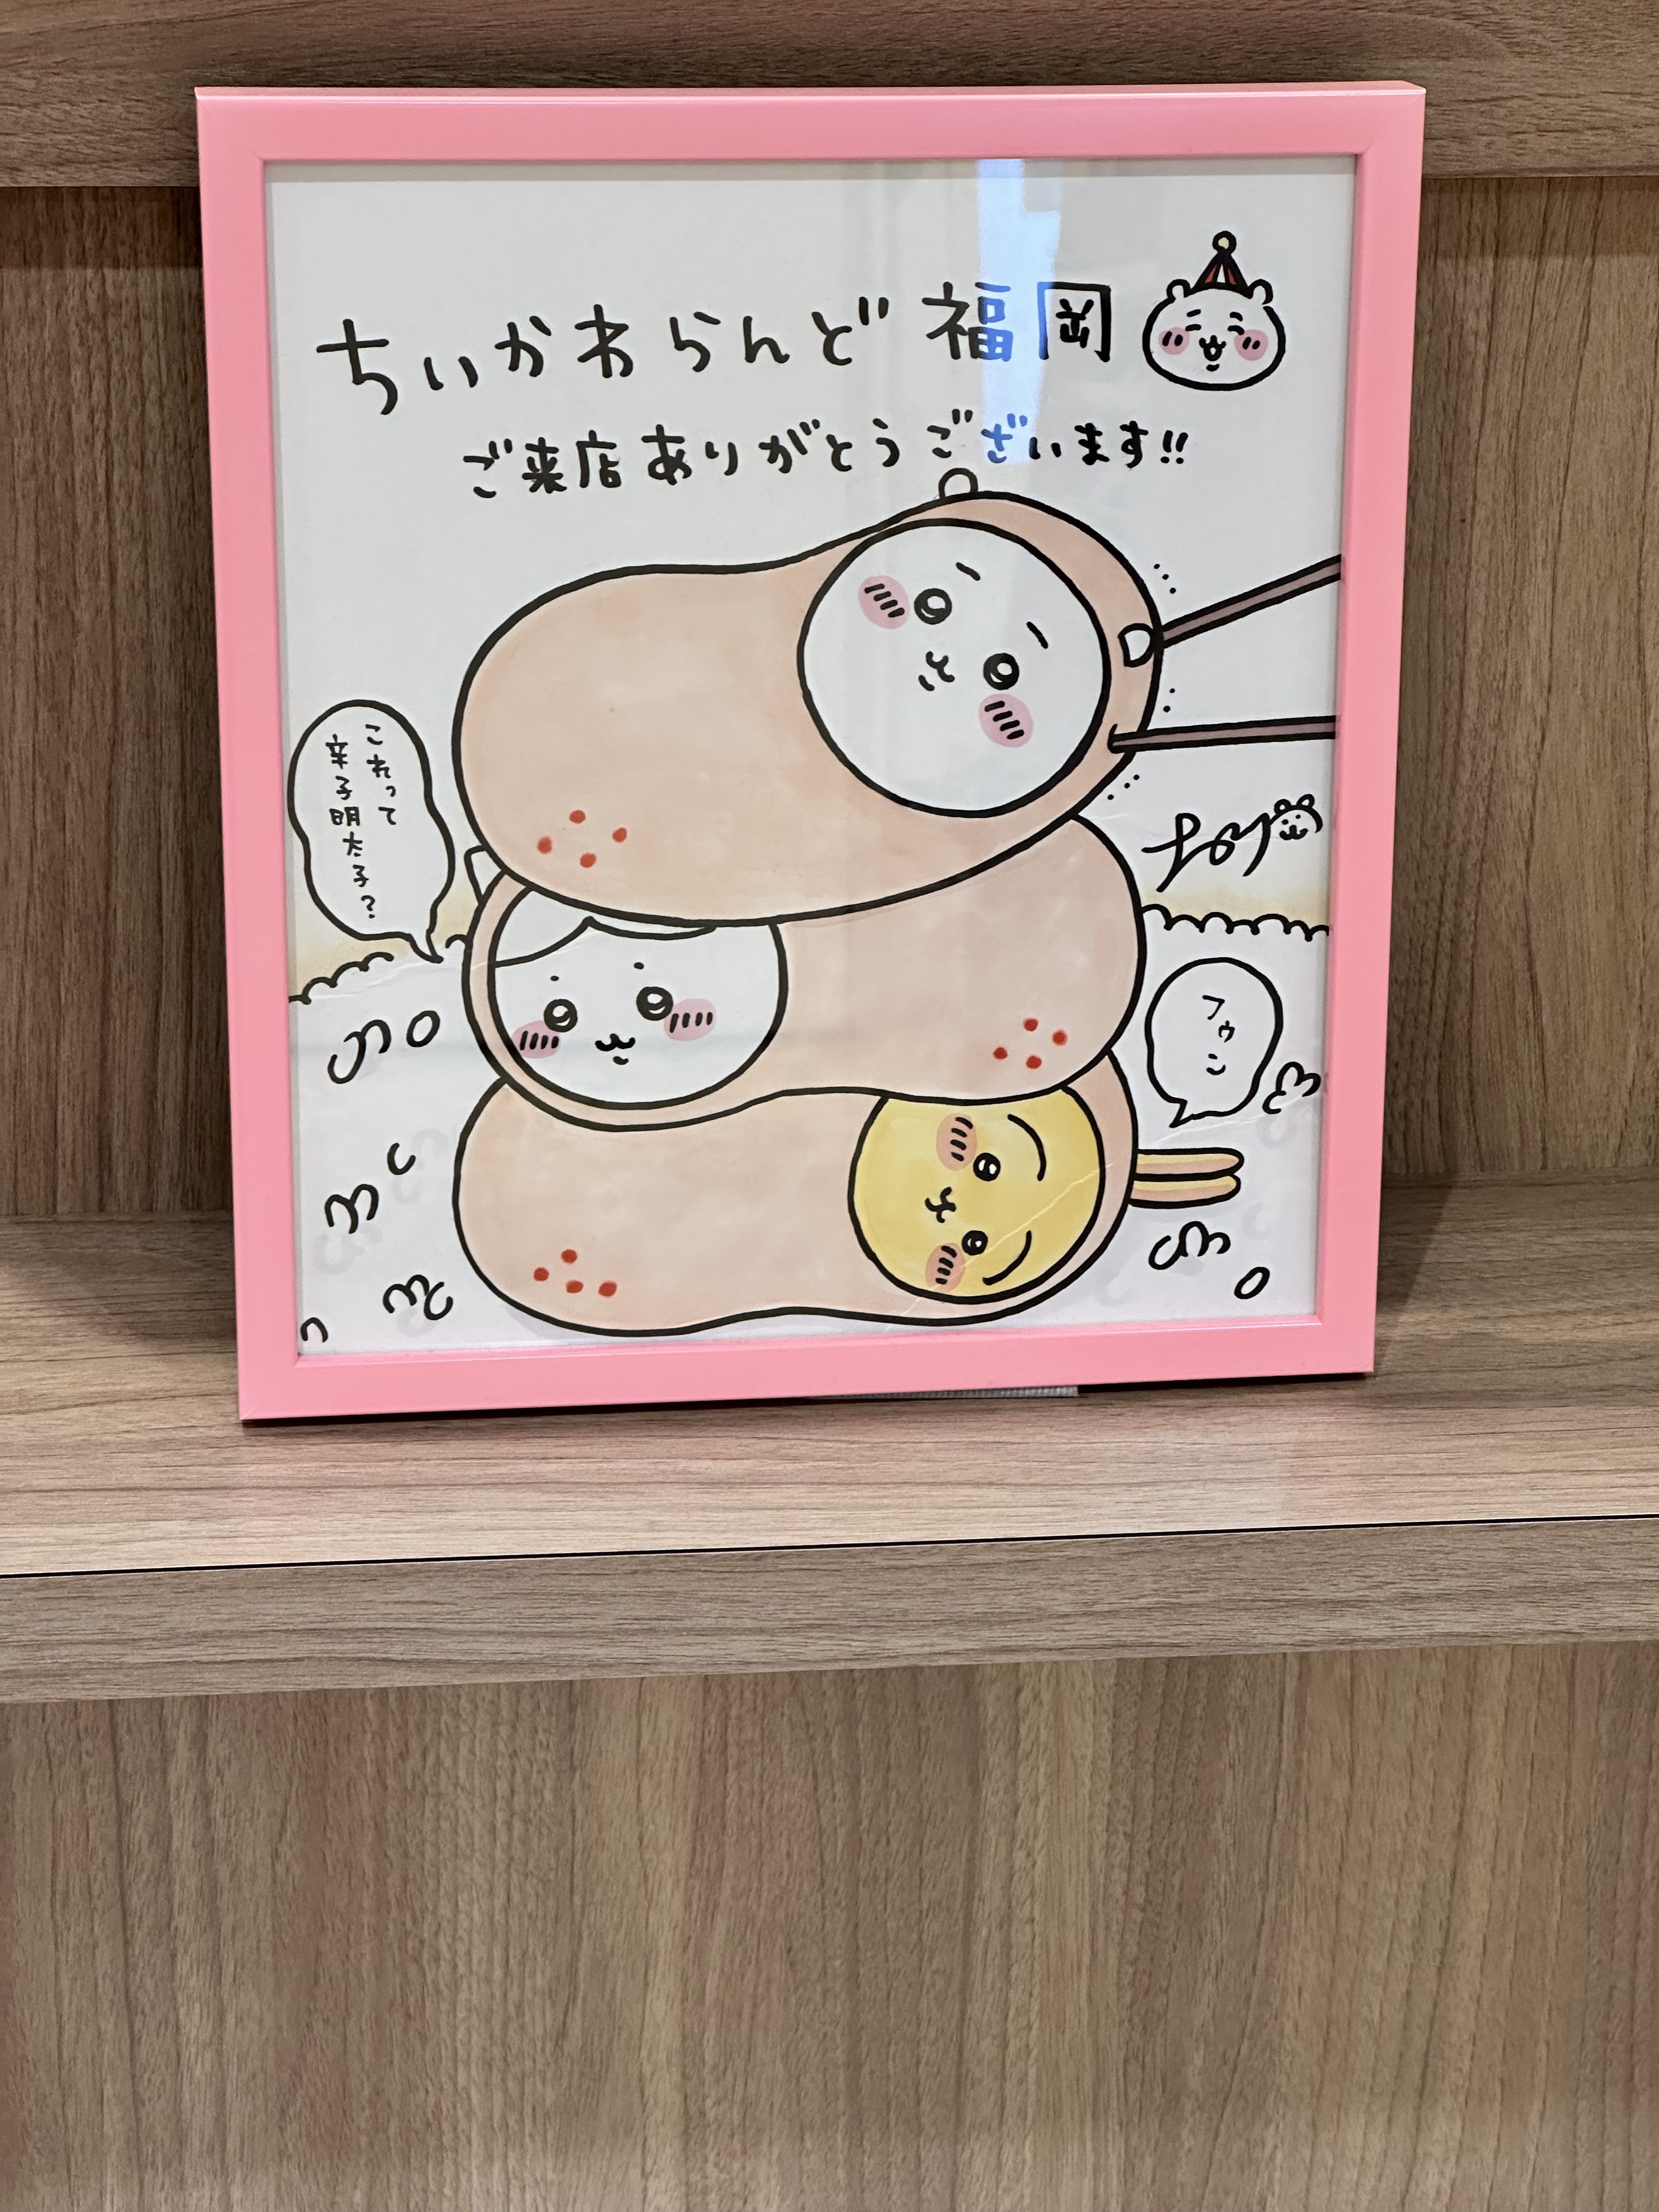 ちいかわらんど 福岡
ご来店ありがとうございます!!
これって
辛子明太子?
フゥン